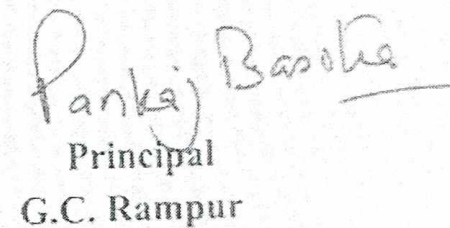 Pankaj Basotra
Principal
G.C. Rampur